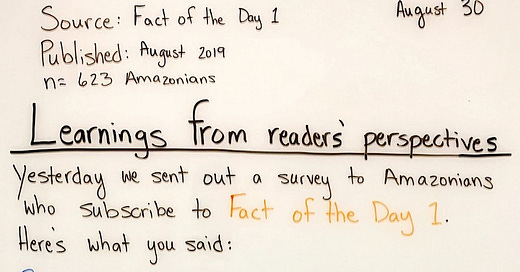 Source: Fact of the Day 1
August 30
Published: August 2019
n= 623 Amazonians
Learnings from readers' perspectives
Yesterday we sent out a survey to Amazonians
who subscribe to Fact of the Day 1.
Here's what you said: